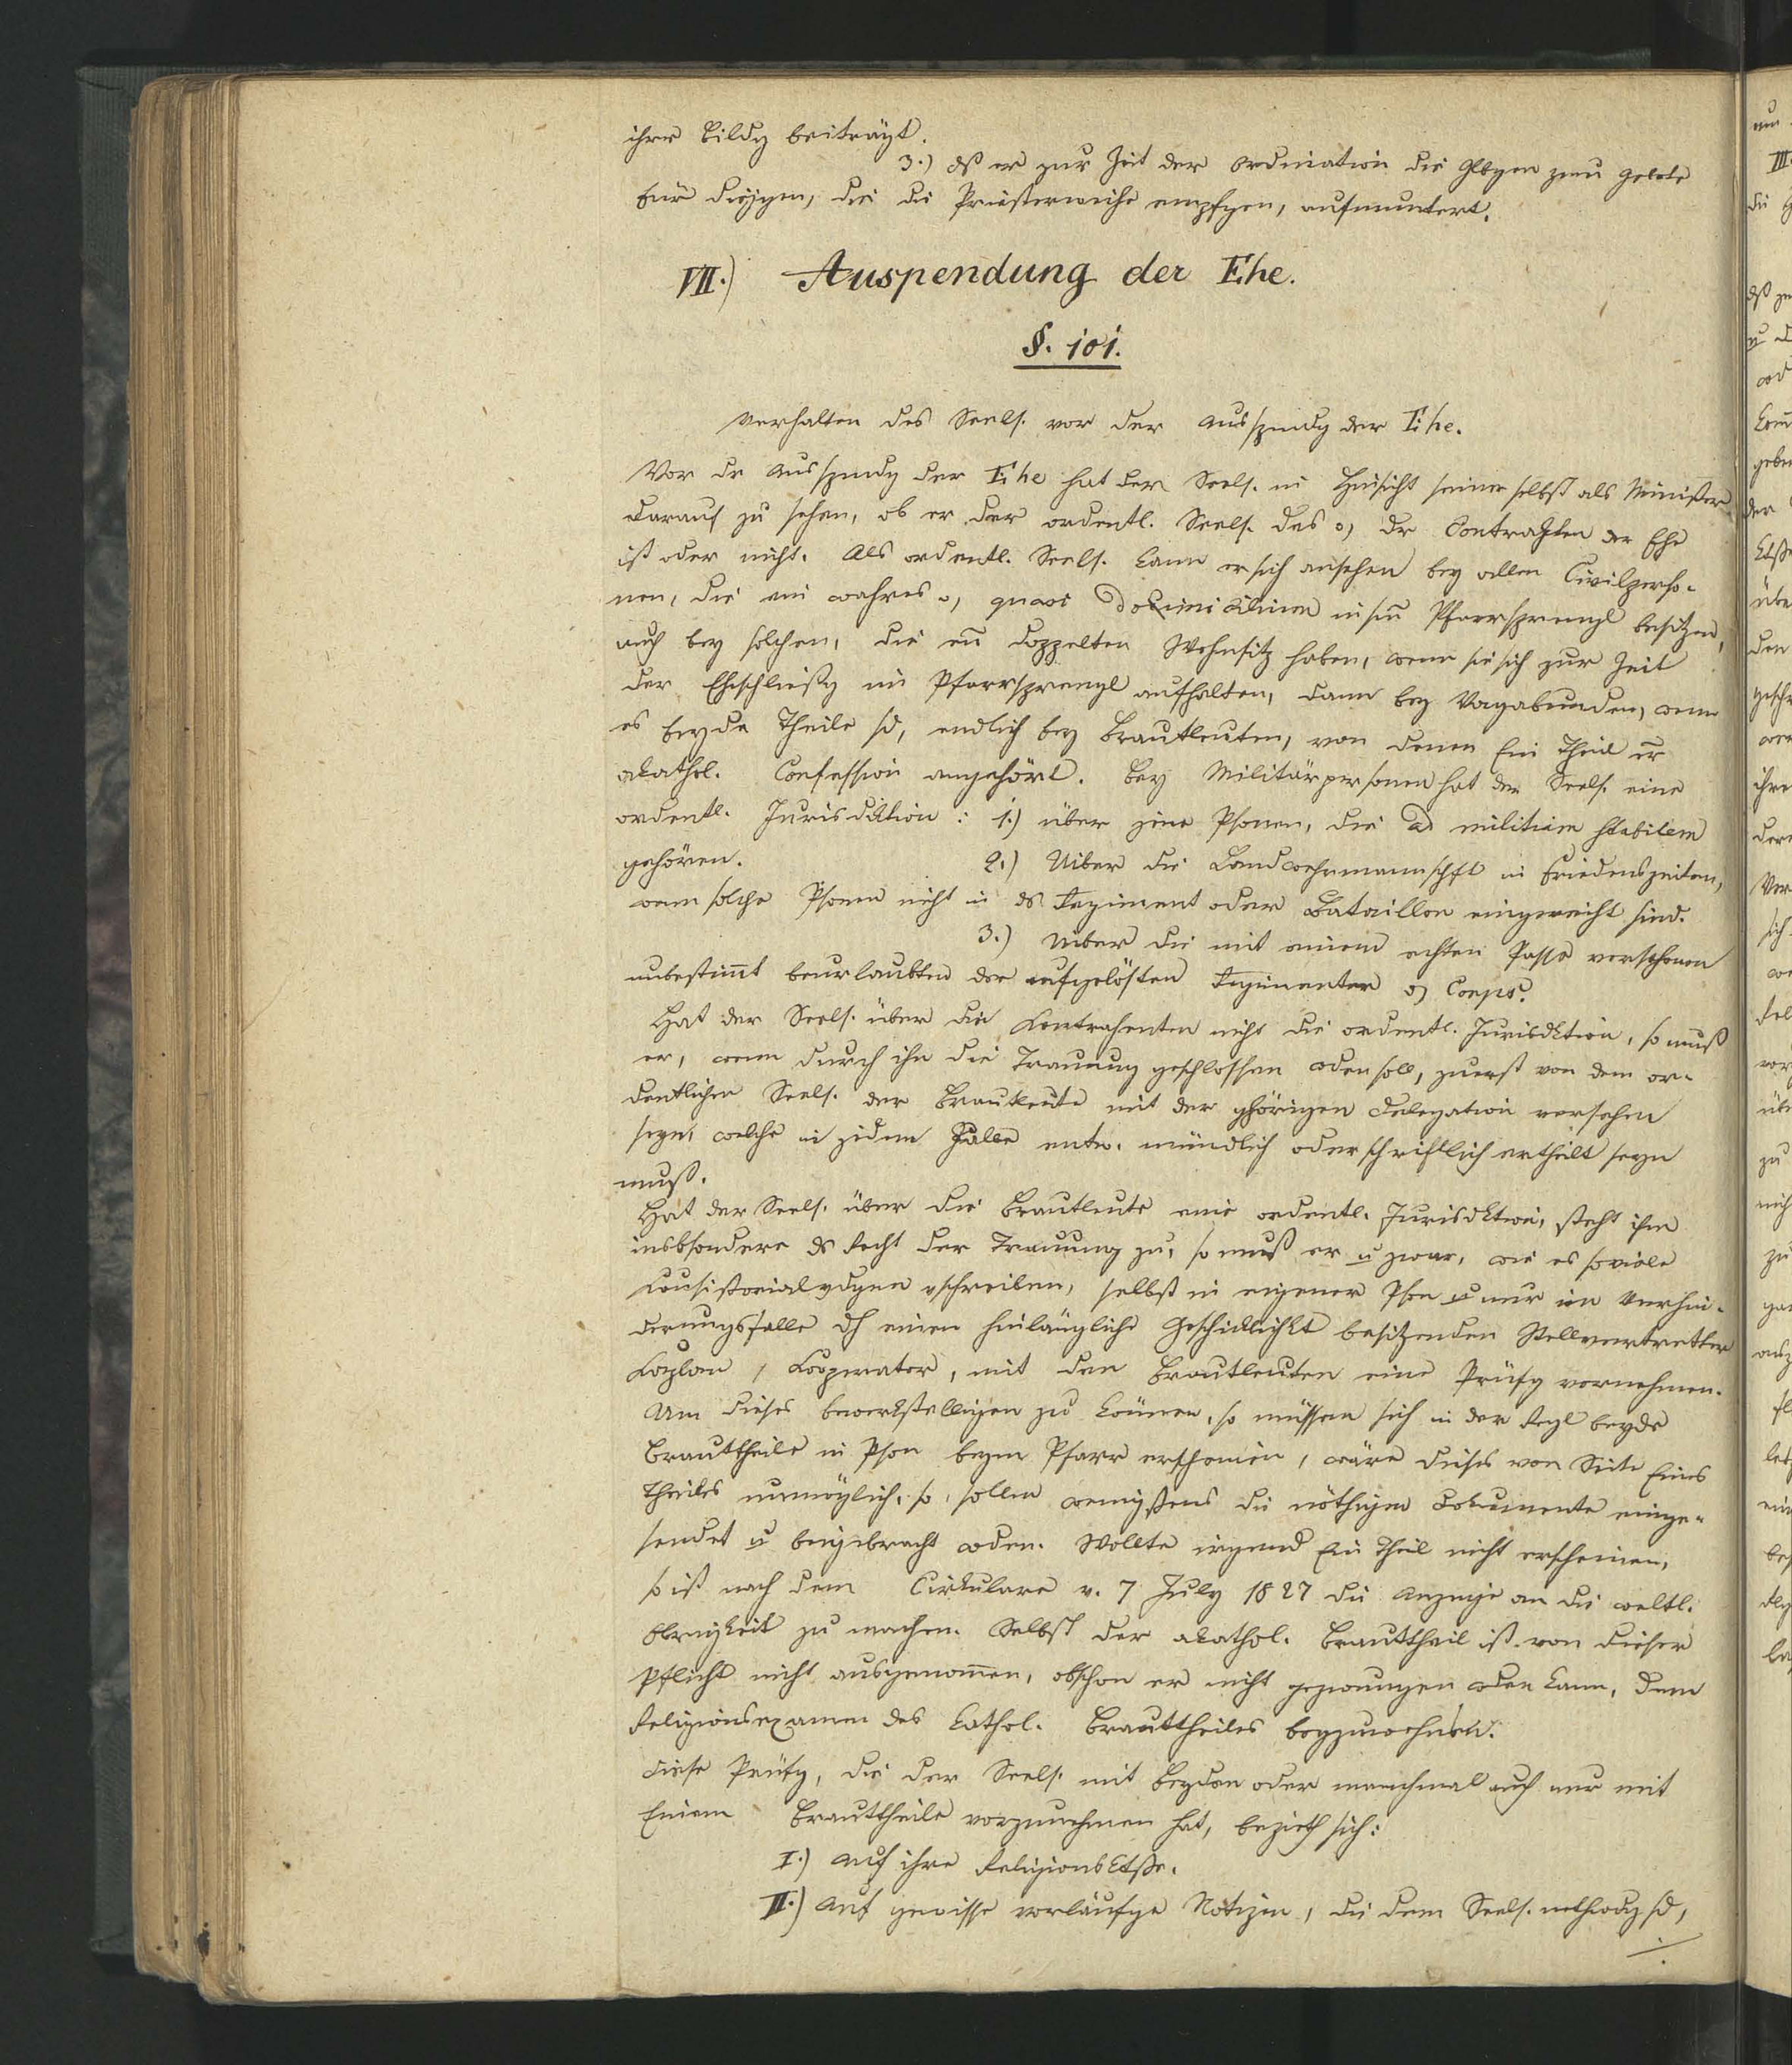 ihrer Bildg beiträgt.
3.) dß er zur Zeit der Ordination die Glbgen zum Gebete
für diejjgen, die die Priesterweihe empfgen, aufmuntert.
VII.) Auspendung der Ehe.
§. 101.
Verhalten des Seels. vor der Ausspendg der Ehe.
Vor dr Ausspendg der Ehe hat der Seels. in Hinsicht seiner selbst als Minister
darauf zu sehen, ob er der ordentl. Seels. des o, dr Contrahten der Ehe
ist oder nicht. Als ordentl. Seels. kann er sich ansehen bey allen Civilperso-
nen, die ein wahres o, quasi Domicilium in sm Pfarrsprengl besitzen,
auch bey solchen, die en doppelten Wohnsitz haben, wenn sie sich zur Zeit
der Ehschließg im Pfarrsprengl aufhalten, dann bey Vagabunden, wenn
es beyde Theile sd, endlich bey Brautleuten, von denen Ein Theil er
akathol. Confession angehört. Bey Militärpersonen hat der Seels. eine
ordentl. Jurisdiktion: 1.) über jene Psonen, die ad militiam stabilem
gehören. 2.) Uiber die Landwehrmannschft in Friedenszeiten,
wenn solche Psonen nicht in ds Regiment oder Bataillon eingereiht sind.
3.) Uiber die mit einem echten Passe versehenen
unbestimmt beurlaubten der aufgelösten Regimenter o, Corps.
Hat der Seels. über die Kontrahenten nicht die ordentl. Jurisdktion, so muß
er, wenn durch ihn die Trauung geschlossen wden soll, zuerst von dem or-
dentlichen Seels. der Brautleute mit der ghörigen Delegation versehen
seyn, welche in jedem Falle entw. mündlich oder schriftlich ertheilt seyn
muß.
Hat der Seels. über die Brautleute eine ordentl. Jurisdktion, steht ihm
insbsondere ds Recht der Trauung zu, so muß er u zwar, wie es so viele
Consistorialvdgen vschreiben, selbst in eigener Pson u nur im Verhin-
derungsfalle dh einen hinlängliche Geschicklichkt besitzenden Stellvertretter
Kaplan, Kooperator, mit den Brautleuten eine Prüfg vornehmen.
Um dieses bewerkstelligen zu können, so müssen sich in der Regl beyde
Brauttheile in Pson beym Pfarr erscheinen, wäre dieses von Seite Eines
Theiles unmöglich, so sollen wenigstens die nöthigen Dokumente einge-
sendet u beigebracht wden. Wollte irgend Ein Theil nicht erscheinen,
so ist nach dem Cirkulare v. 7 July 1827 die Anzeige an die weltl.
Obrigkeit zu machen. Selbst der akathol. Brauttheil ist von dieser
Pflicht nicht ausgenommen, obschon er nicht gezwungen wden kann, dem
Religionsexamen des kathol. Brauttheiles beyzuwohnen.
Diese Prüfg, die der Seels. mit beyden oder manchmal auch nur mit
Einem Brauttheile vorzunehmen hat, bezieht sich:
I.) Auf ihre Religionsktße.
II.) Auf gewisse vorläufge Notizen, die dem Seels. nothwdg sd,